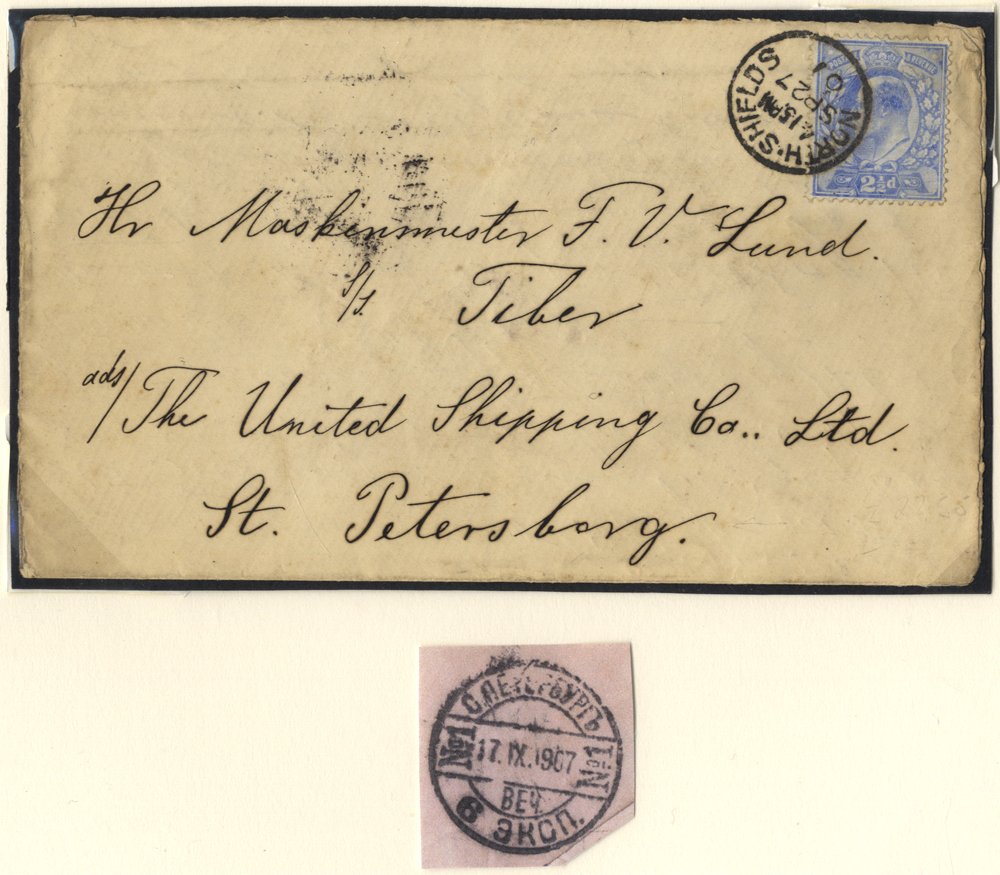 NORTH·SHIELDS
4.15PM
SP 27
07
POSTAGE REVENUE
2½d
Hr Maskenmester F. V. Lund.
S/S. Tiber
ads/ The United Shipping Co.. Ltd.
St. Petersborg.
С.ПЕТЕРБУРГЪ
№1 17.IX.1907 №1
ВЕЧ.
6 ЭКСП.